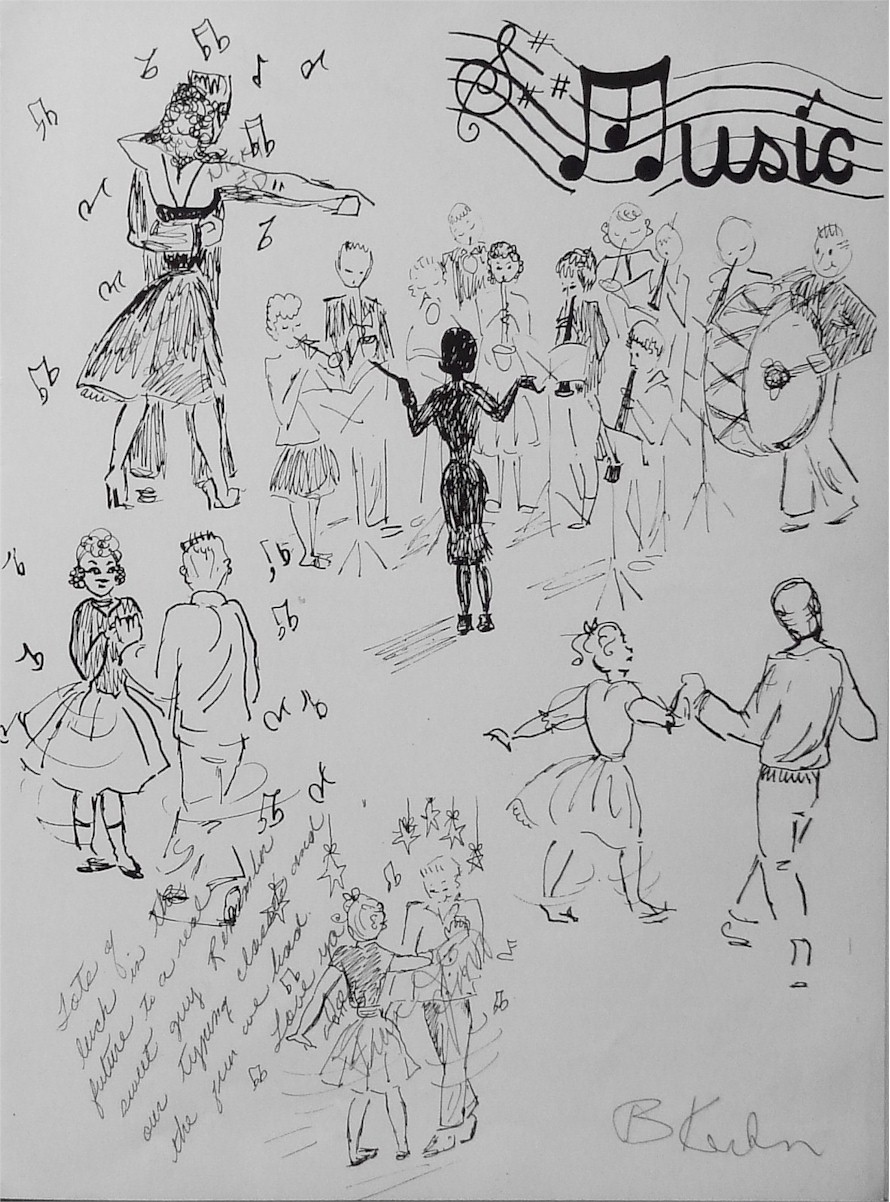 Music
Lots of
luck in the
future to a real
sweet guy Remember
our typing classes and
the fun we had.
Love ya
B K